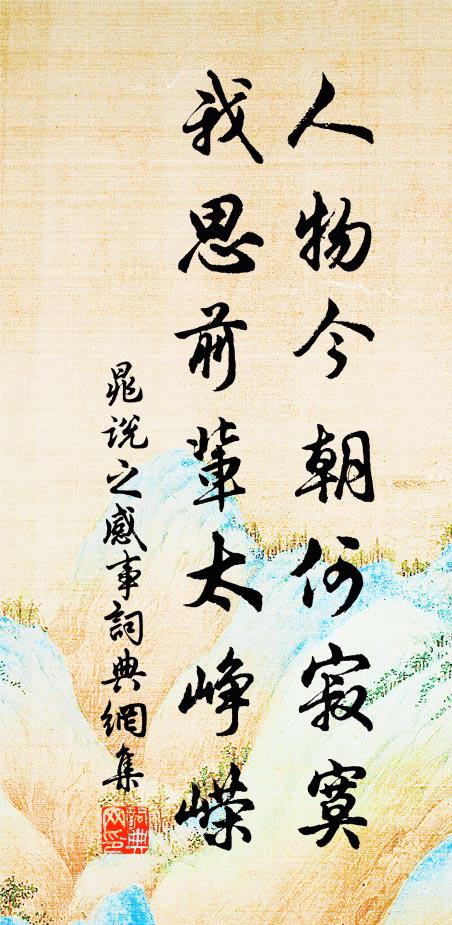 人物今朝何寂寞
我思前輩太崢嶸
晁說之感事詞典網集
詞典
网印